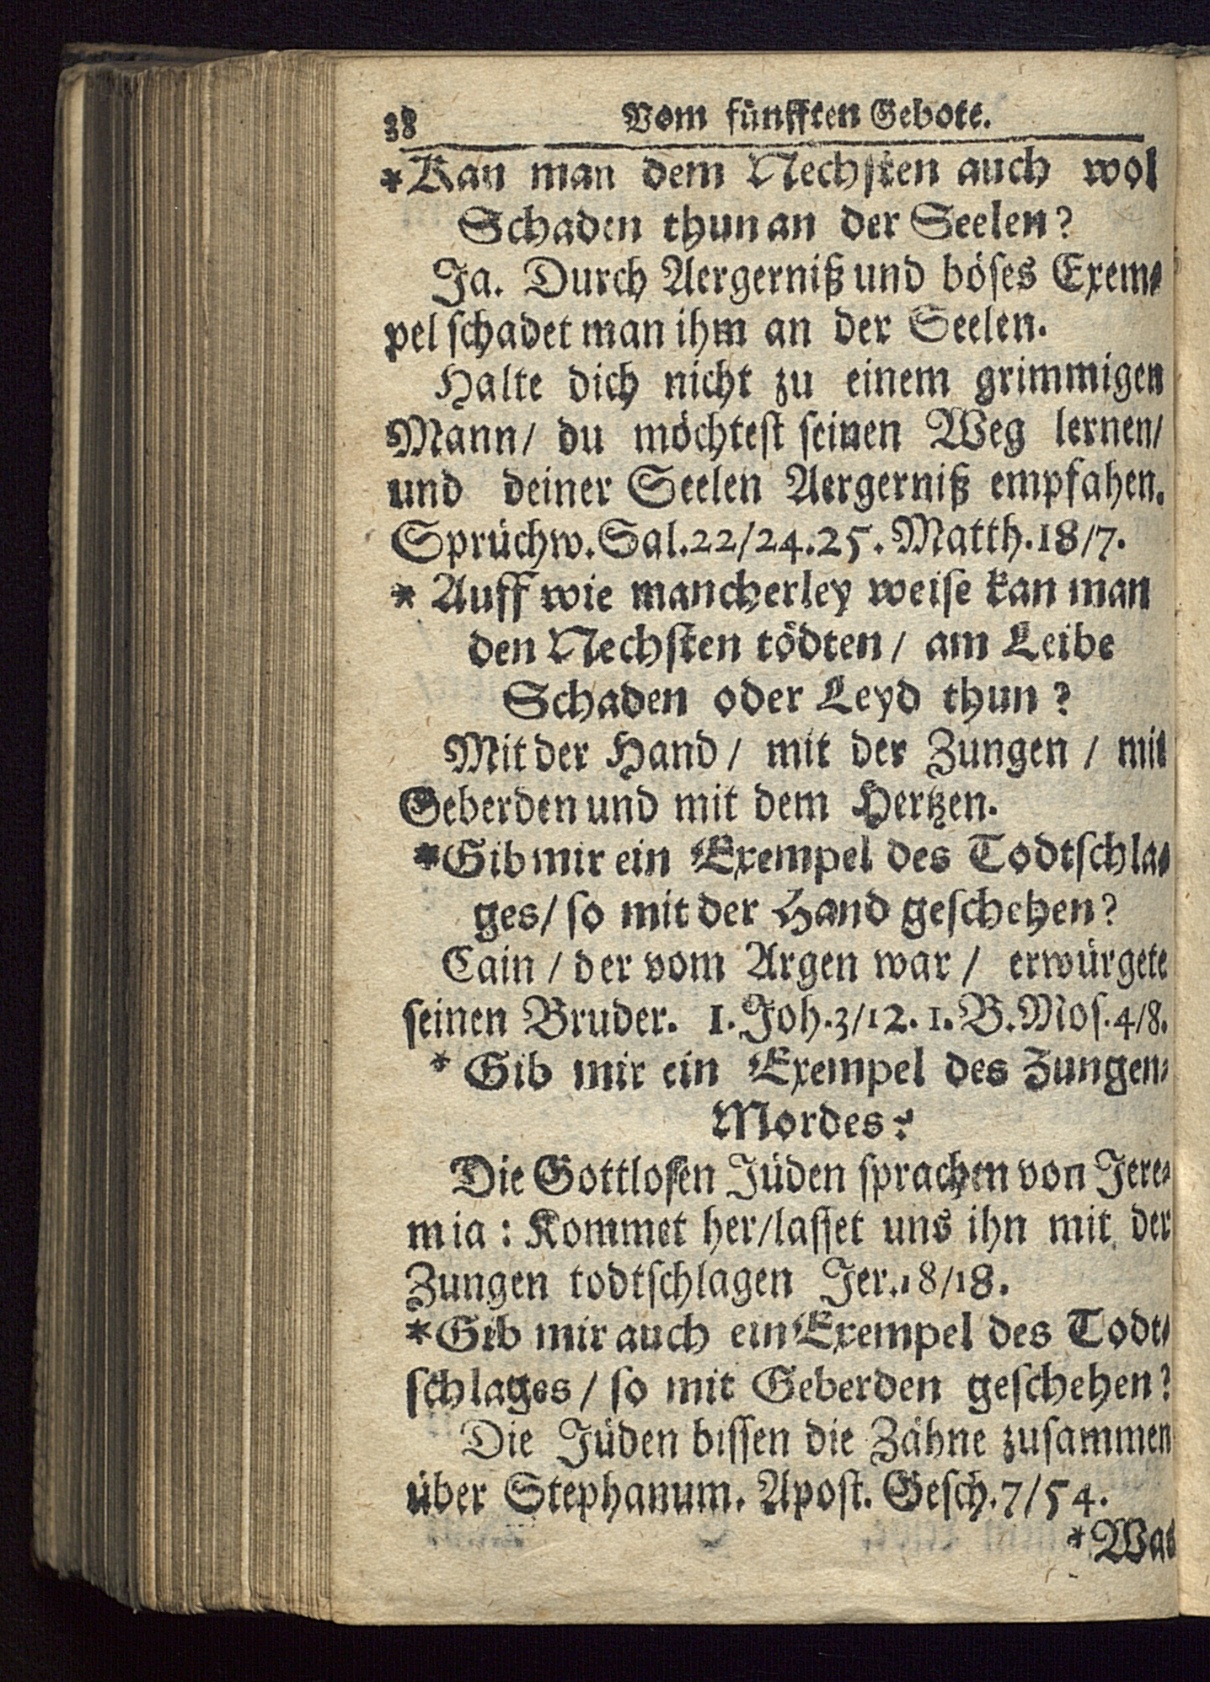 38 Vom fünfften Gebote.
*Kan man dem Nechsten auch wol
Schaden thun an der Seelen?
Ja. Durch Aergerniß und böses Exem-
pel schadet man ihm an der Seelen.
Halte dich nicht zu einem grimmigen
Mann/ du möchtest seinen Weg lernen/
und deiner Seelen Aergerniß empfahen.
Sprüchw. Sal. 22/24.25. Matth. 18/7.
* Auff wie mancherley weise kan man
den Nechsten tödten/ am Leibe
Schaden oder Leyd thun?
Mit der Hand/ mit der Zungen/ mit
Geberden und mit dem Hertzen.
*Gib mir ein Exempel des Todtschla-
ges/ so mit der Hand geschehen?
Cain/ der vom Argen war/ erwürgete
seinen Bruder. 1. Joh. 3/12. 1. B. Mos. 4/8.
* Gib mir ein Exempel des Zungen-
Mordes?
Die Gottlosen Jüden sprachen von Jere-
mia: Kommet her/lasset uns ihn mit der
Zungen todtschlagen Jer. 18/18.
*Gib mir auch ein Exempel des Todt-
schlages/ so mit Geberden geschehen?
Die Jüden bissen die Zähne zusammen
über Stephanum. Apost. Gesch. 7/54.
*Was